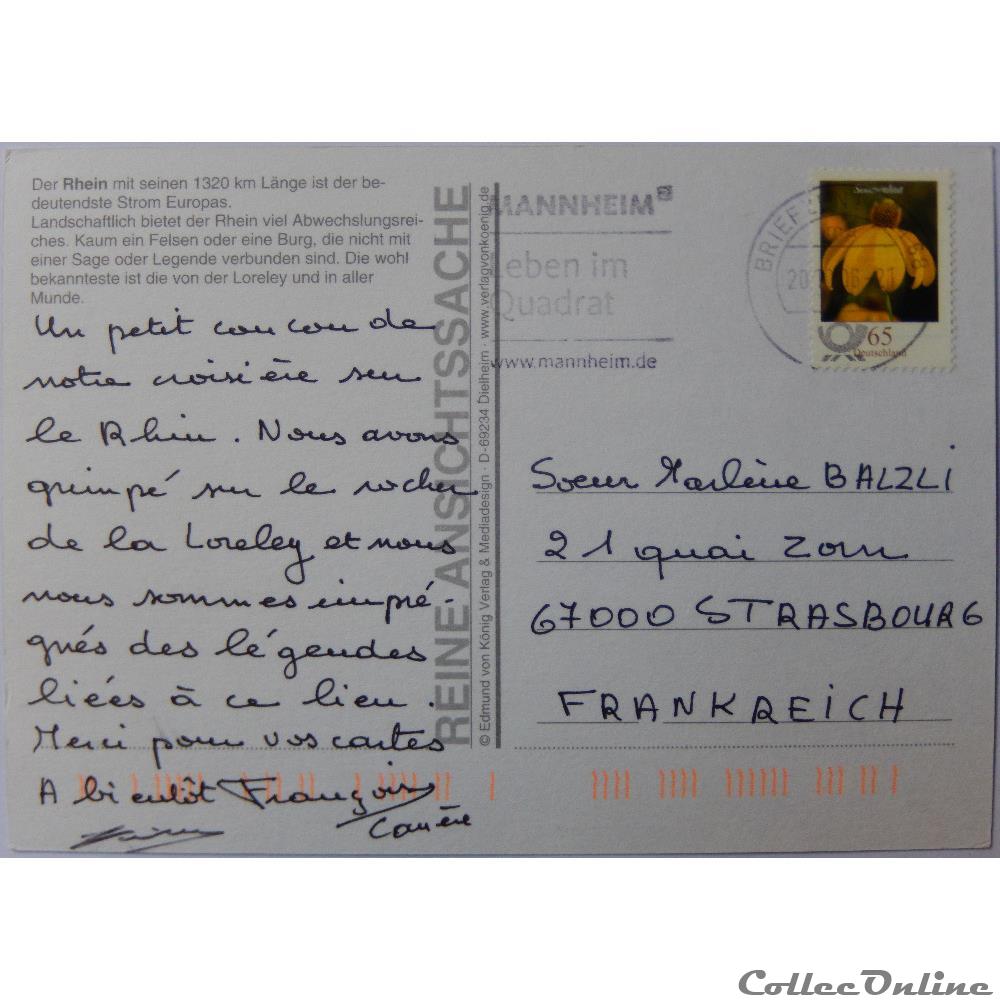 Der Rhein mit seinen 1320 km Länge ist der be-
deutendste Strom Europas.
Landschaftlich bietet der Rhein viel Abwechslungsrei-
ches. Kaum ein Felsen oder eine Burg, die nicht mit
einer Sage oder Legende verbunden sind. Die wohl
bekannteste ist die von der Loreley und in aller
Munde.
Un petit coucou de
notre croisière sur
le Rhin. Nous avons
grimpé sur le rocher
de la Loreley et nous
nous sommes impré-
gnés des légendes
liées à ce lieu.
Merci pour vos cartes
A bientôt François
Carrère
REINE ANSICHTSSACHE
© Edmund von König Verlag & Mediadesign · D-69234 Dielheim · www.verlagvonkoenig.de
MANNHEIM²
Leben im
Quadrat
www.mannheim.de
BRIEF
68
65
Deutschland
Soeur Marlène BALZLI
21 quai Zorn
67000 STRASBOURG
FRANKREICH
CollecOnline